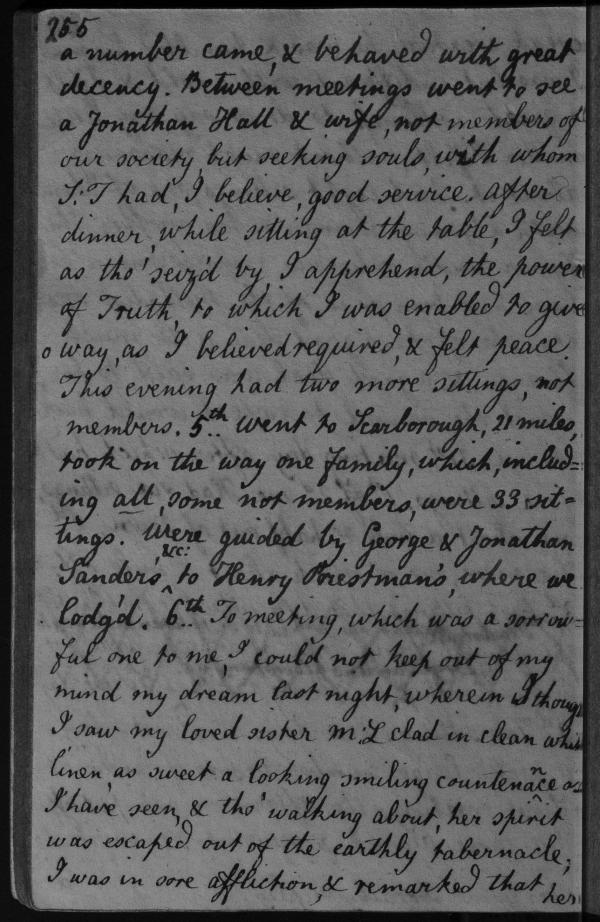 255
a number came, & behaved with great
decency. Between meetings went to see
a Jonathan Hall & wife, not members of
our society, but seeking souls, with whom
S:T had, I believe, good service. After
dinner, while sitting at the table, I felt
as tho' seiz'd by, I apprehend, the power
of Truth, to which I was enabled to give
o way, as I believed required, & felt peace.
This evening had two more sittings, not
members. 5th.. went to Scarborough, 21 miles,
took on the way one family, which, includ=
ing all, some not members, were 33 sit=
tings. Were guided by George & Jonathan
&c:
Sanders, ^ to Henry Priestman's, where we
lodg'd. 6th.. To meeting, which was a sorrow=
ful one to me, I could not keep out of my
mind my dream last night, wherein I though
I saw my loved sister M:L clad in clean whit
linen, as sweet a looking smiling countenance as
I have seen, & tho' walking about, her spirit
was escaped out of the earthly tabernacle;
I was in sore affliction, & remarked that her